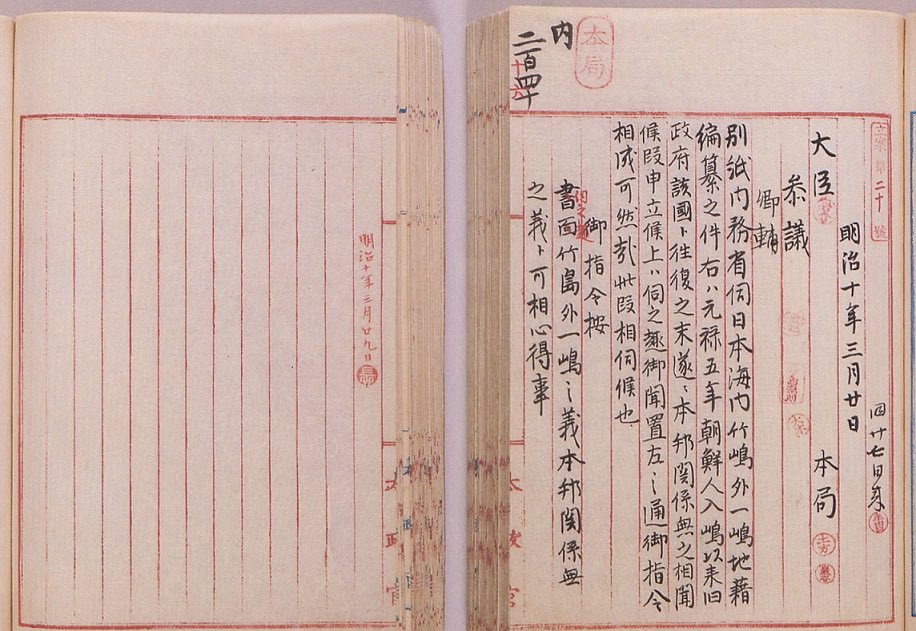 本局
立案第二十號
四月廿七日来
明治十年三月廿日 本局
大臣
参議
卿輔
別紙内務省伺日本海内竹嶋外一嶋地籍
編纂之件右ハ元禄五年朝鮮人入嶋以来旧
政府該國ト往復之末遂ニ本邦関係無之相聞
候段申立候上ハ伺之趣御聞置左之通御指令
相成可然哉此段相伺候也
御指令按
伺之趣
書面竹島外一嶋之義本邦関係無
之義ト可相心得事
内
二百四十
十六
明治十年三月廿九日
太政官
太政官